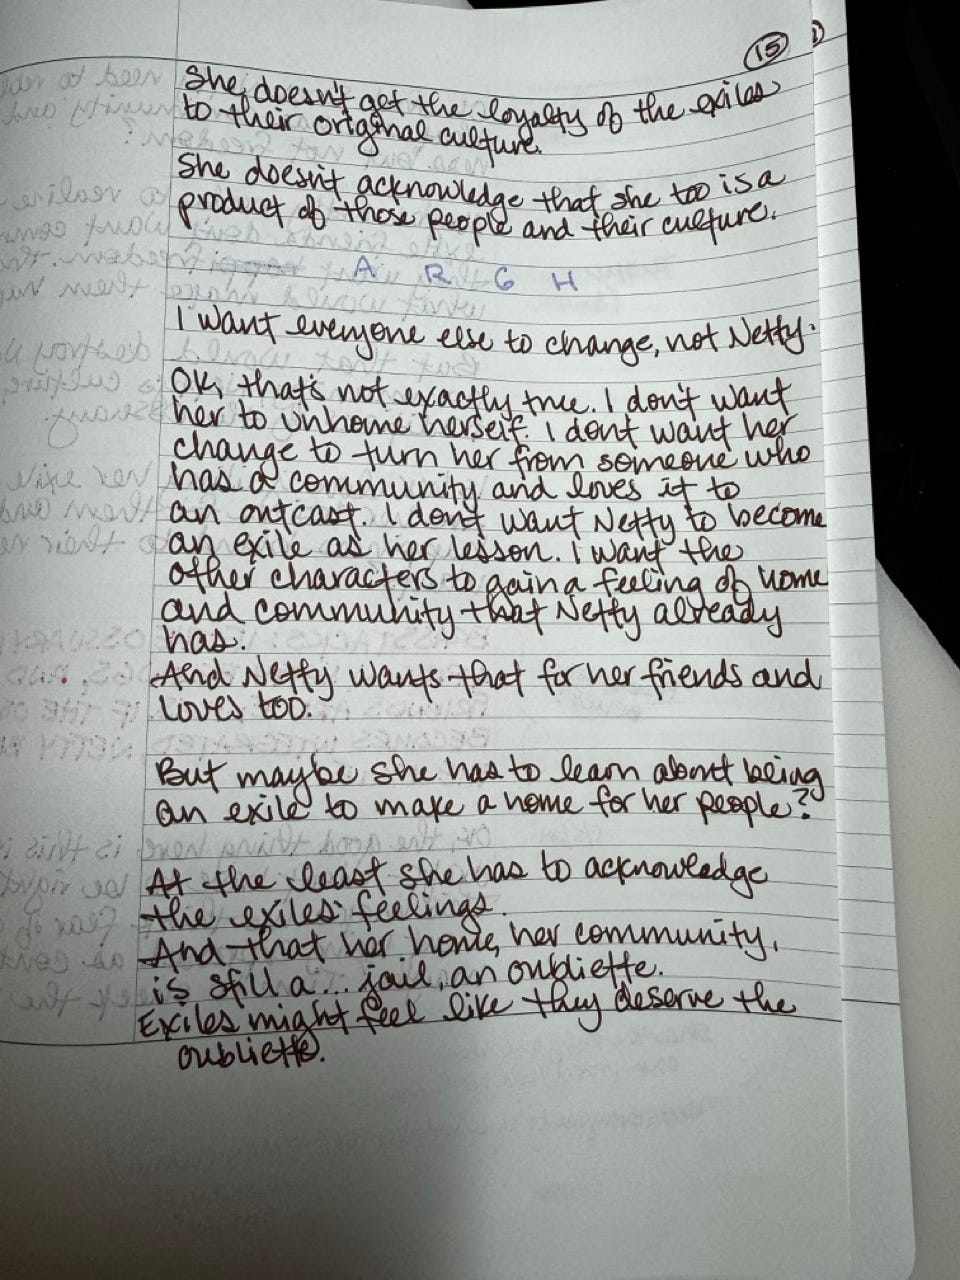 15
She doesn't get the loyalty of the exiles
to their original culture.
She doesn't acknowledge that she too is a
product of those people and their culture.
A R G H
I want everyone else to change, not Netty.
OK, that's not exactly true. I don't want
her to unhome herself. I dont want her
change to turn her from someone who
has a community and loves it to
an outcast. I don't want Netty to become
an exile as her lesson. I want the
other characters to gain a feeling of home
and community that Netty already
has.
And Netty wants that for her friends and
loves too.
But maybe she has to learn about being
an exile to make a home for her people?
At the least she has to acknowledge
the exiles' feelings.
And that her home, her community,
is still a... jail, an oubliette.
Exiles might feel like they deserve the
oubliette.